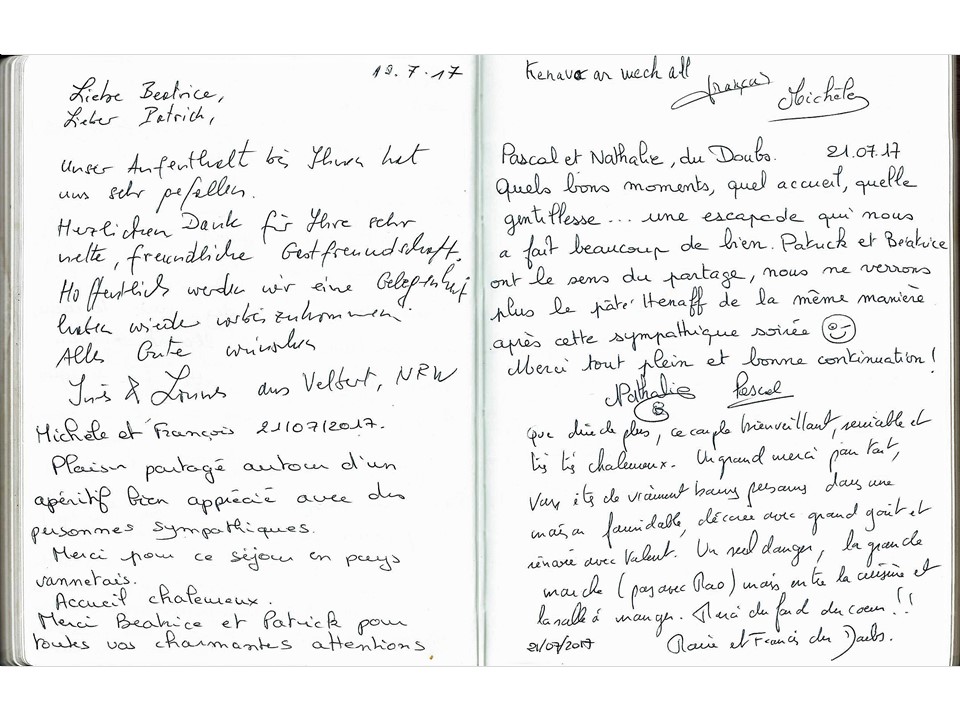 19.7.17
Liebe Beatrice,
Lieber Patrick,
unser Aufenthalt bei Ihnen hat
uns sehr gefallen.
Herzlichen Dank für Ihre sehr
nette, freundliche Gastfreundschaft.
Hoffentlich werden wir eine Gelegenheit
haben wieder vorbeizukommen.
Alles Gute wünschen
Inès & aus Velbert, NRW
Michèle et François 21/07/2017.
Plaisir partagé autour d'un
apéritif bien apprécié avec des
personnes sympathiques.
Merci pour ce séjour en pays
vannetais.
Accueil chaleureux.
Merci Beatrice et Patrick pour
toutes vos charmantes attentions.
Kenavo ar wech all
François
Michèle
Pascal et Nathalie, du Doubs. 21.07.17
Quels bons moments, quel accueil, quelle
gentillesse... une escapade qui nous
a fait beaucoup de bien. Patrick et Béatrice
ont le sens du partage, nous ne verrons
plus le pâté Henaff de la même manière
après cette sympathique soirée
Merci tout plein et bonne continuation !
Nathalie Pascal
Que dire de plus, ce couple bienveillant, serviable et
très très chaleureux. Un grand merci pour tout,
vous êtes de vraiment bonnes personnes dans une
maison formidable, décorée avec grand goût et
rénovée avec talent. Un seul danger, la grande
marche (pas avec Rao) mais entre la cuisine et
la salle à manger. Merci du fond du coeur !!
21/07/2017 et Francis du Doubs.